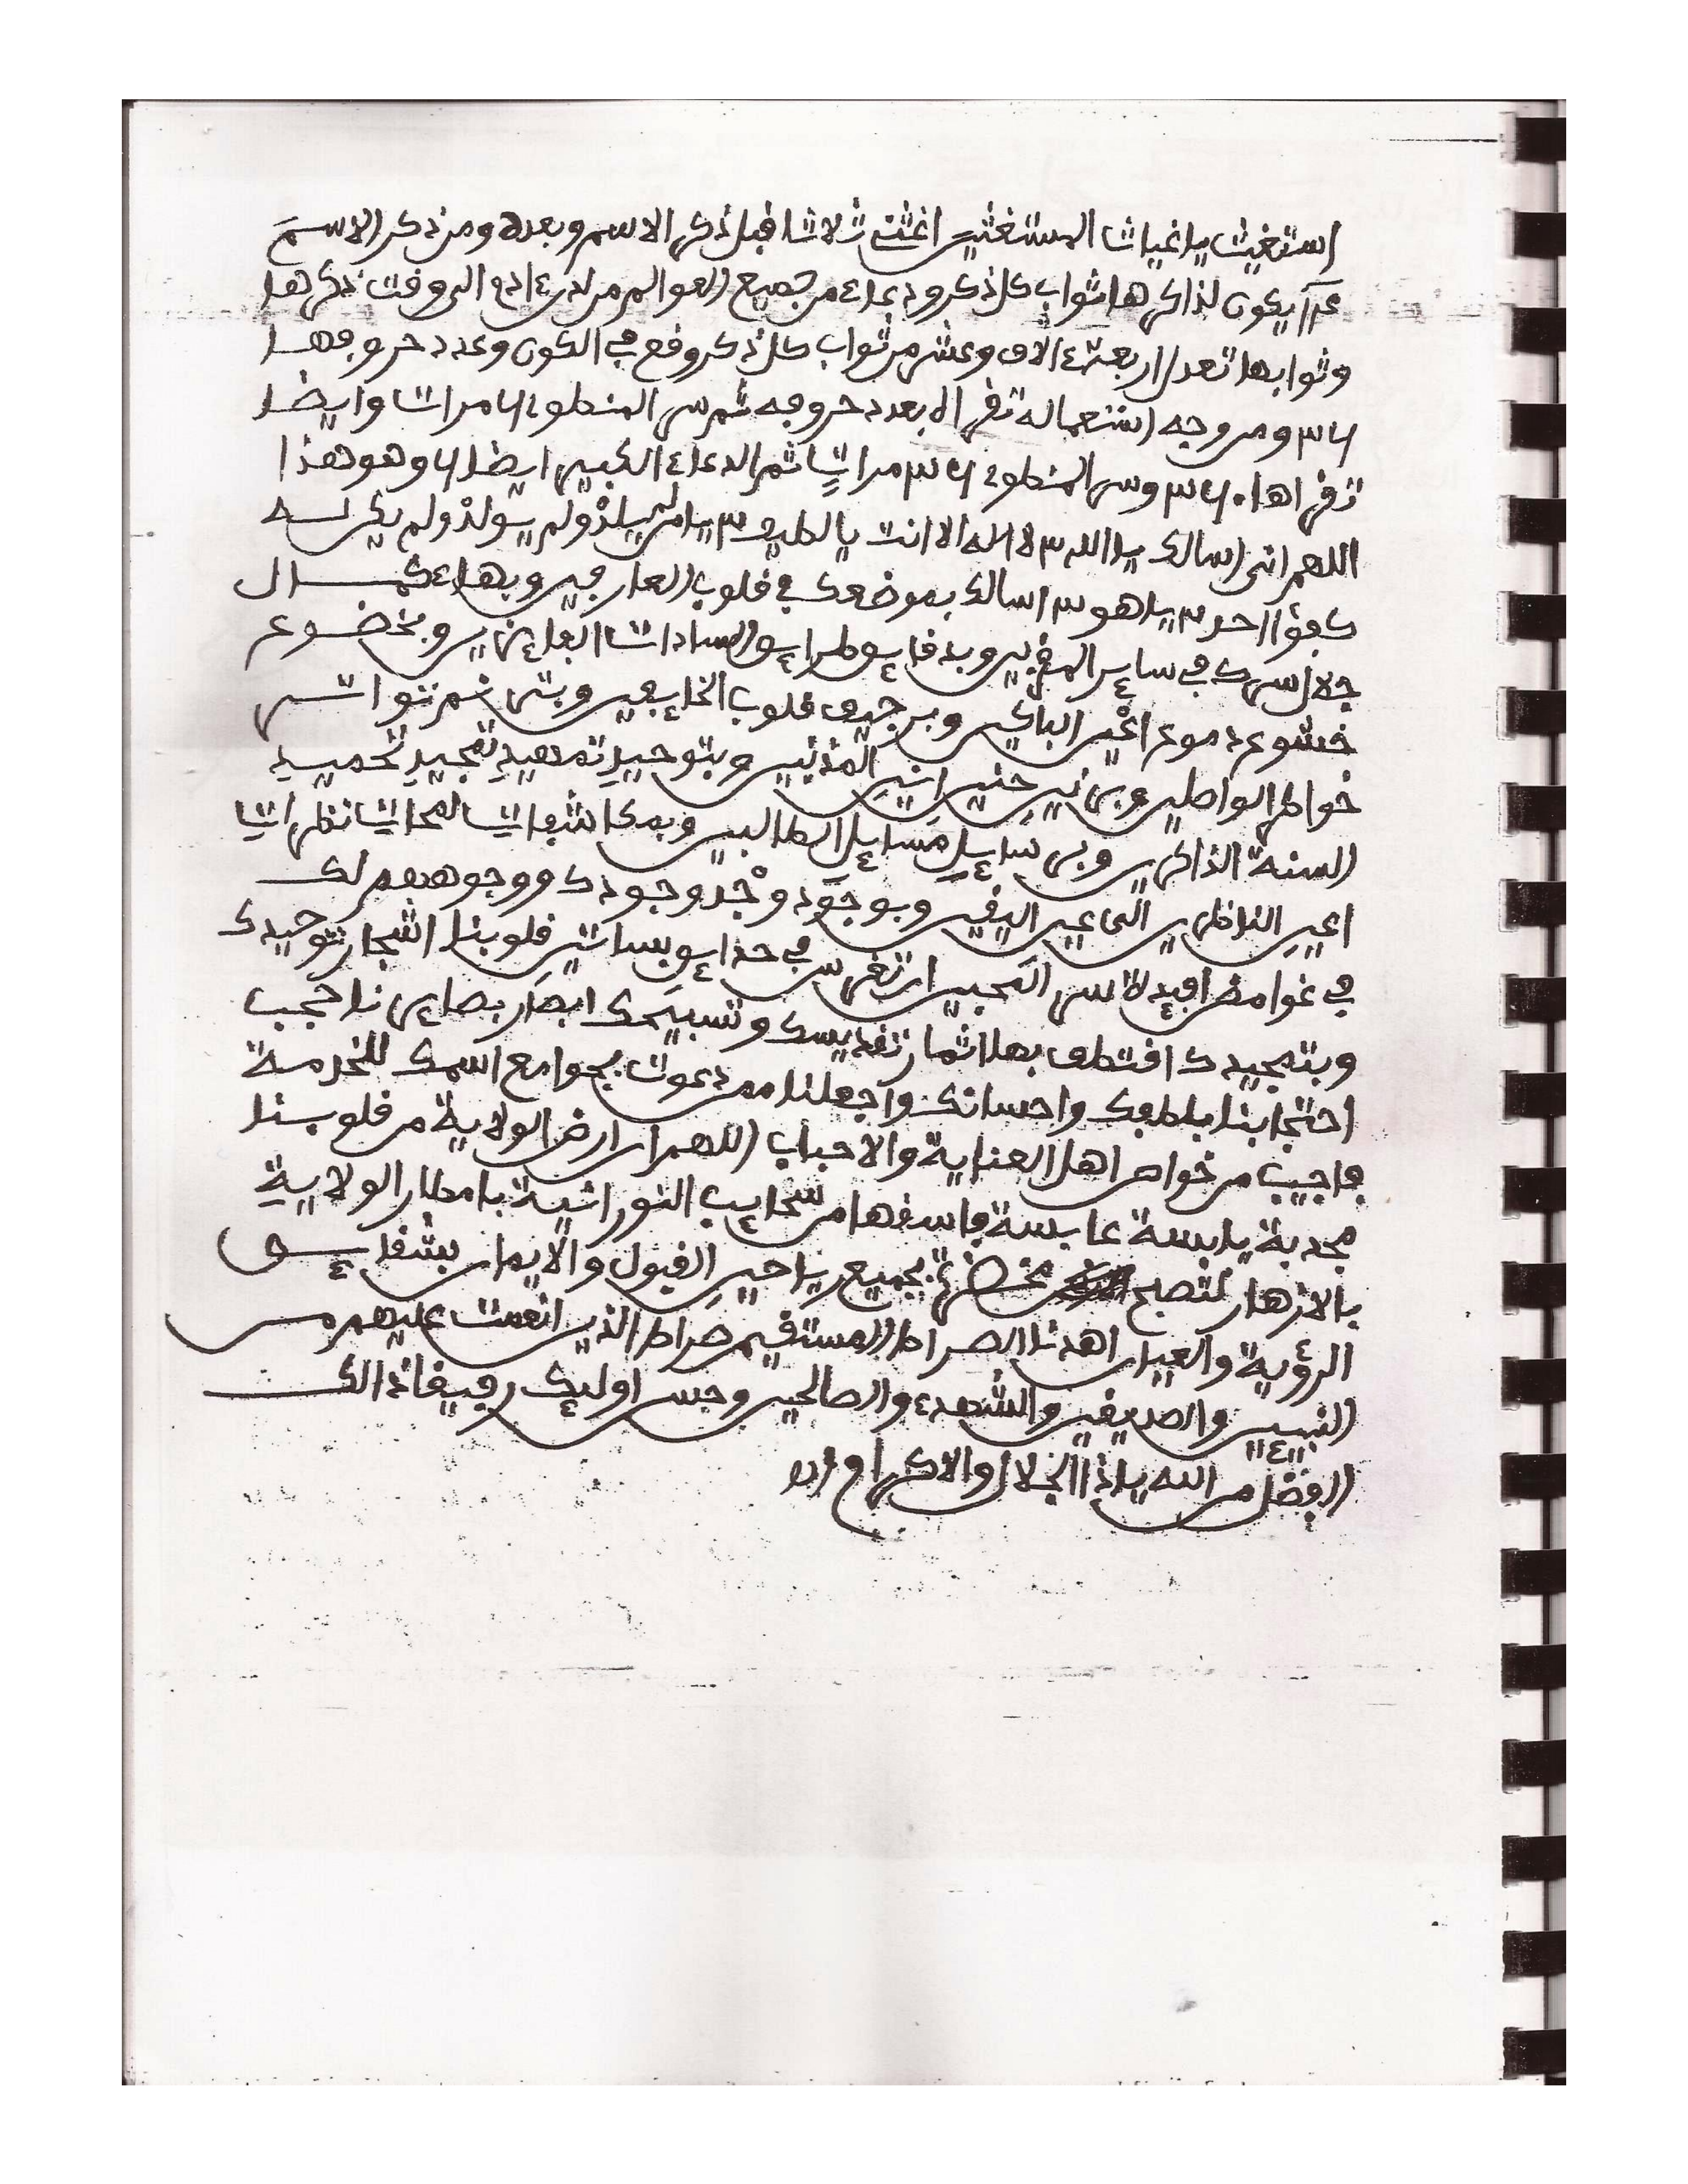 استغيث يا غياث المستغثين اغثني ثلاثا قبل ذكر الاسم وبعده ومن ذكر الاسم
يكون لذاكرها ثواب كل ذكر ودعاء من جميع العوالم من لدن ءادم الى وقت ذكرها
وثوابها تعدل اربعة ءالاف وعشر من ثواب كل ذكر وقع في الكون وعدد حروفها
٣٦ ومن وجه استعماله تقرا لا بعدد حروفه ثم سر المنطلو مرات وايضا
تقراها وسر المنطلو مرات ثم الدعاء الكبير ايضا وهو هذا
اللهم اني اسالك يا الله ٣ لا اله الا انت يا لطيف ٣ يا من لم يلد ولم يولد ولم يكن له
كفؤا احد ٣ يا هو ٣ اسالك بموضعك في قلوب العارفين وبهاء كمال
جلال سرك في ساير المقربين وبدقايق طرايق السادات الفايزين وبخضوع
خشوع دموع اعين الباكين وبرجيف قلوب الخايفين وبترنم تواتر
خواطر الواصلين وبرنين حنين انين المذنبين وبتوحيد تمهيد تمجيد تحميد
السنة الذاكرين وبرسايل مسايل الطالبين وبمكاشفات لمحات نظرات
اعين الناظرين الى عين اليقين وبوجود وجد وجودك ووجوههم لك
في غوامض افيدة سر المحبين ان تغرس في حدايق بساتين قلوبنا اشجار توحيدك
وبتمجيدك اقتطف بها اثمار تقديسك وتسبيحك ابصار بصايرنا حجب
احتجابنا بلطفك واحسانك واجعلنا ممن دعوت بجوامع اسمك للخدمة
فاجيب من خواص اهل العناية والاحباب اللهم ان ارض الولاية من قلوبنا
مجدبة يابسة عابسة فاسقها من سحايب النورانية بامطار الولاية
بالازهار لتصبح مخضرة بجميع رياحين القبول والايمان بشقايق
الرؤية والعيان اهدنا الصراط المستقيم صراط الذين انعمت عليهم من
النبيين والصديقين والشهداء والصالحين وحسن اوليك رفيقا ذالك
الفضل من الله يا ذا الجلال والاكرام